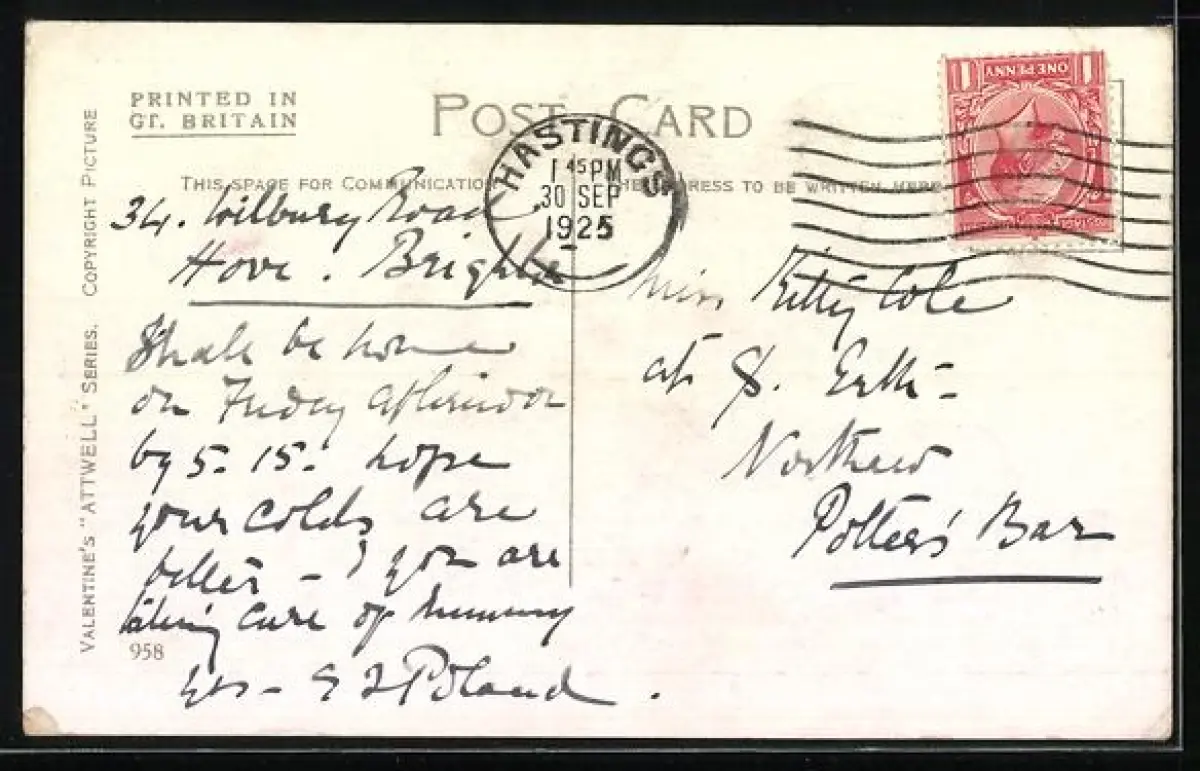 PRINTED IN
GT. BRITAIN
POST CARD
THIS SPACE FOR COMMUNICATION
THE ADDRESS TO BE WRITTEN HERE
HASTINGS
1 45 PM
30 SEP
1925
1 ONE PENNY 1
34. Wilbury Road
Hove. Brighton
Shall be home
on Friday afternoon
by 5-15. hope
your colds are
better - & you are
taking care of mummy
yrs - Poland.
Miss Kitty Cole
at
Northaw
Potters Bar
VALENTINE'S "ATTWELL" SERIES. COPYRIGHT PICTURE
958